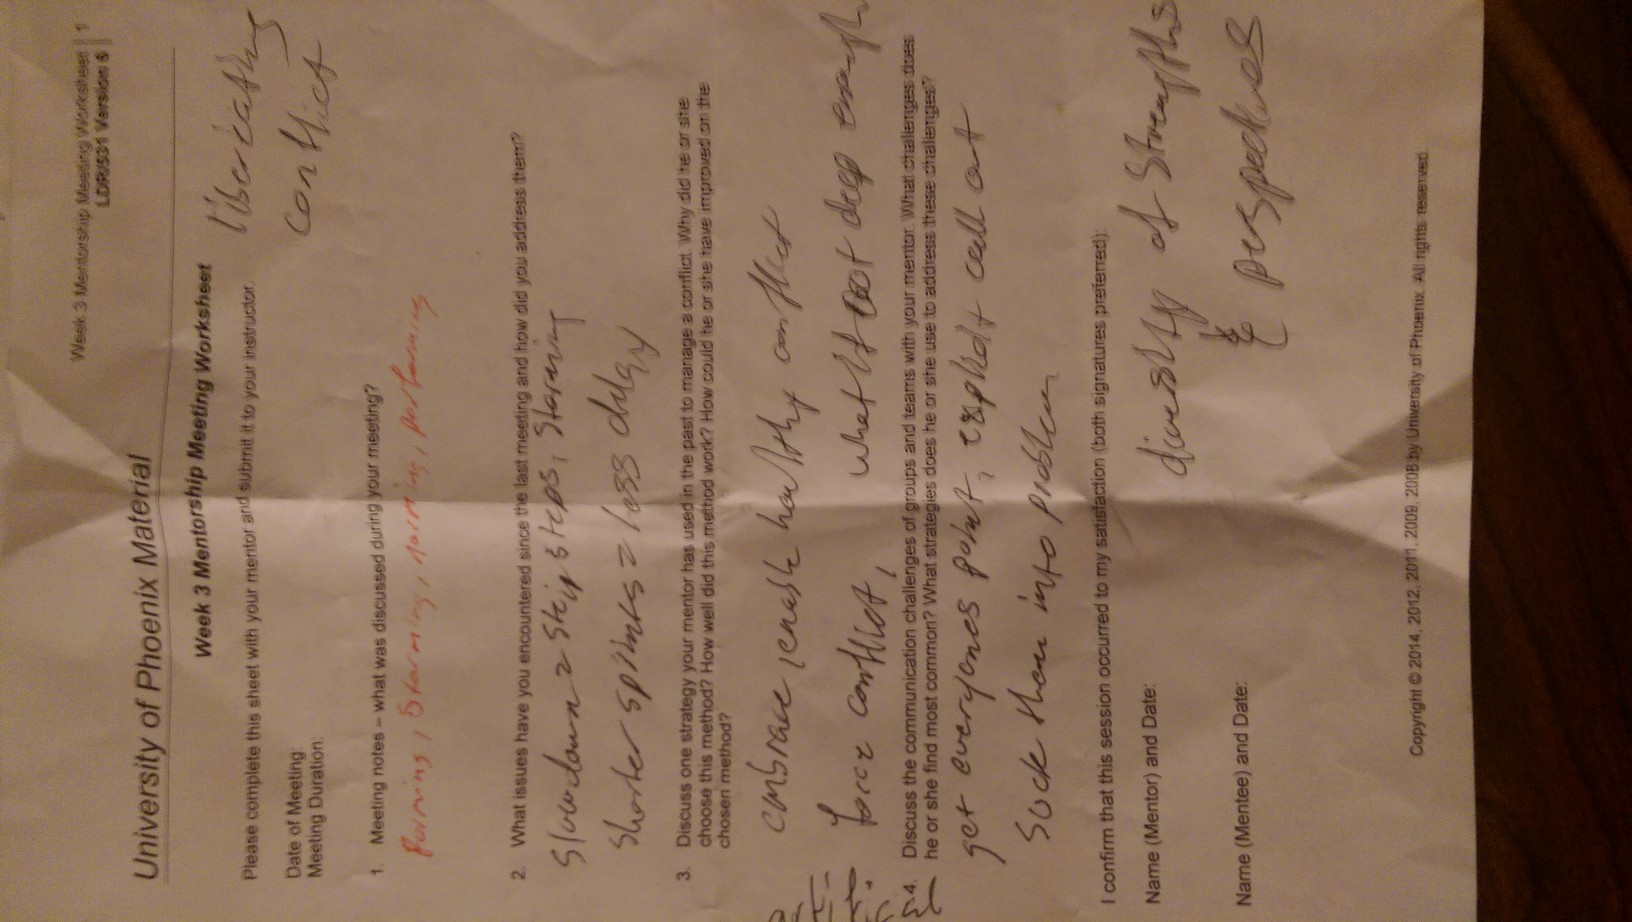 Week 3 Mentorship Meeting Worksheet | 1
LDR/531 Version 6
University of Phoenix Material
Week 3 Mentorship Meeting Worksheet
liberating
conflict
Please complete this sheet with your mentor and submit it to your instructor.
Date of Meeting:
Meeting Duration:
1. Meeting notes – what was discussed during your meeting?
Forming, Storming, norming, performing
2. What issues have you encountered since the last meeting and how did you address them?
Slowdown = Skip steps, Storming
Shorter sprints = less delay
3. Discuss one strategy your mentor has used in the past to manage a conflict. Why did he or she
choose this method? How well did this method work? How could he or she have improved on the
chosen method?
embrace, enable healthy conflict
force conflict, what if not deep enough
artifical
4. Discuss the communication challenges of groups and teams with your mentor. What challenges does
he or she find most common? What strategies does he or she use to address these challenges?
get everyones point, explicit call out
Suck them into problem
I confirm that this session occurred to my satisfaction (both signatures preferred):
Name (Mentor) and Date:
diversity of Strengths
& perspectives
Name (Mentee) and Date:
Copyright © 2014, 2012, 2011, 2009, 2008 by University of Phoenix. All rights reserved.